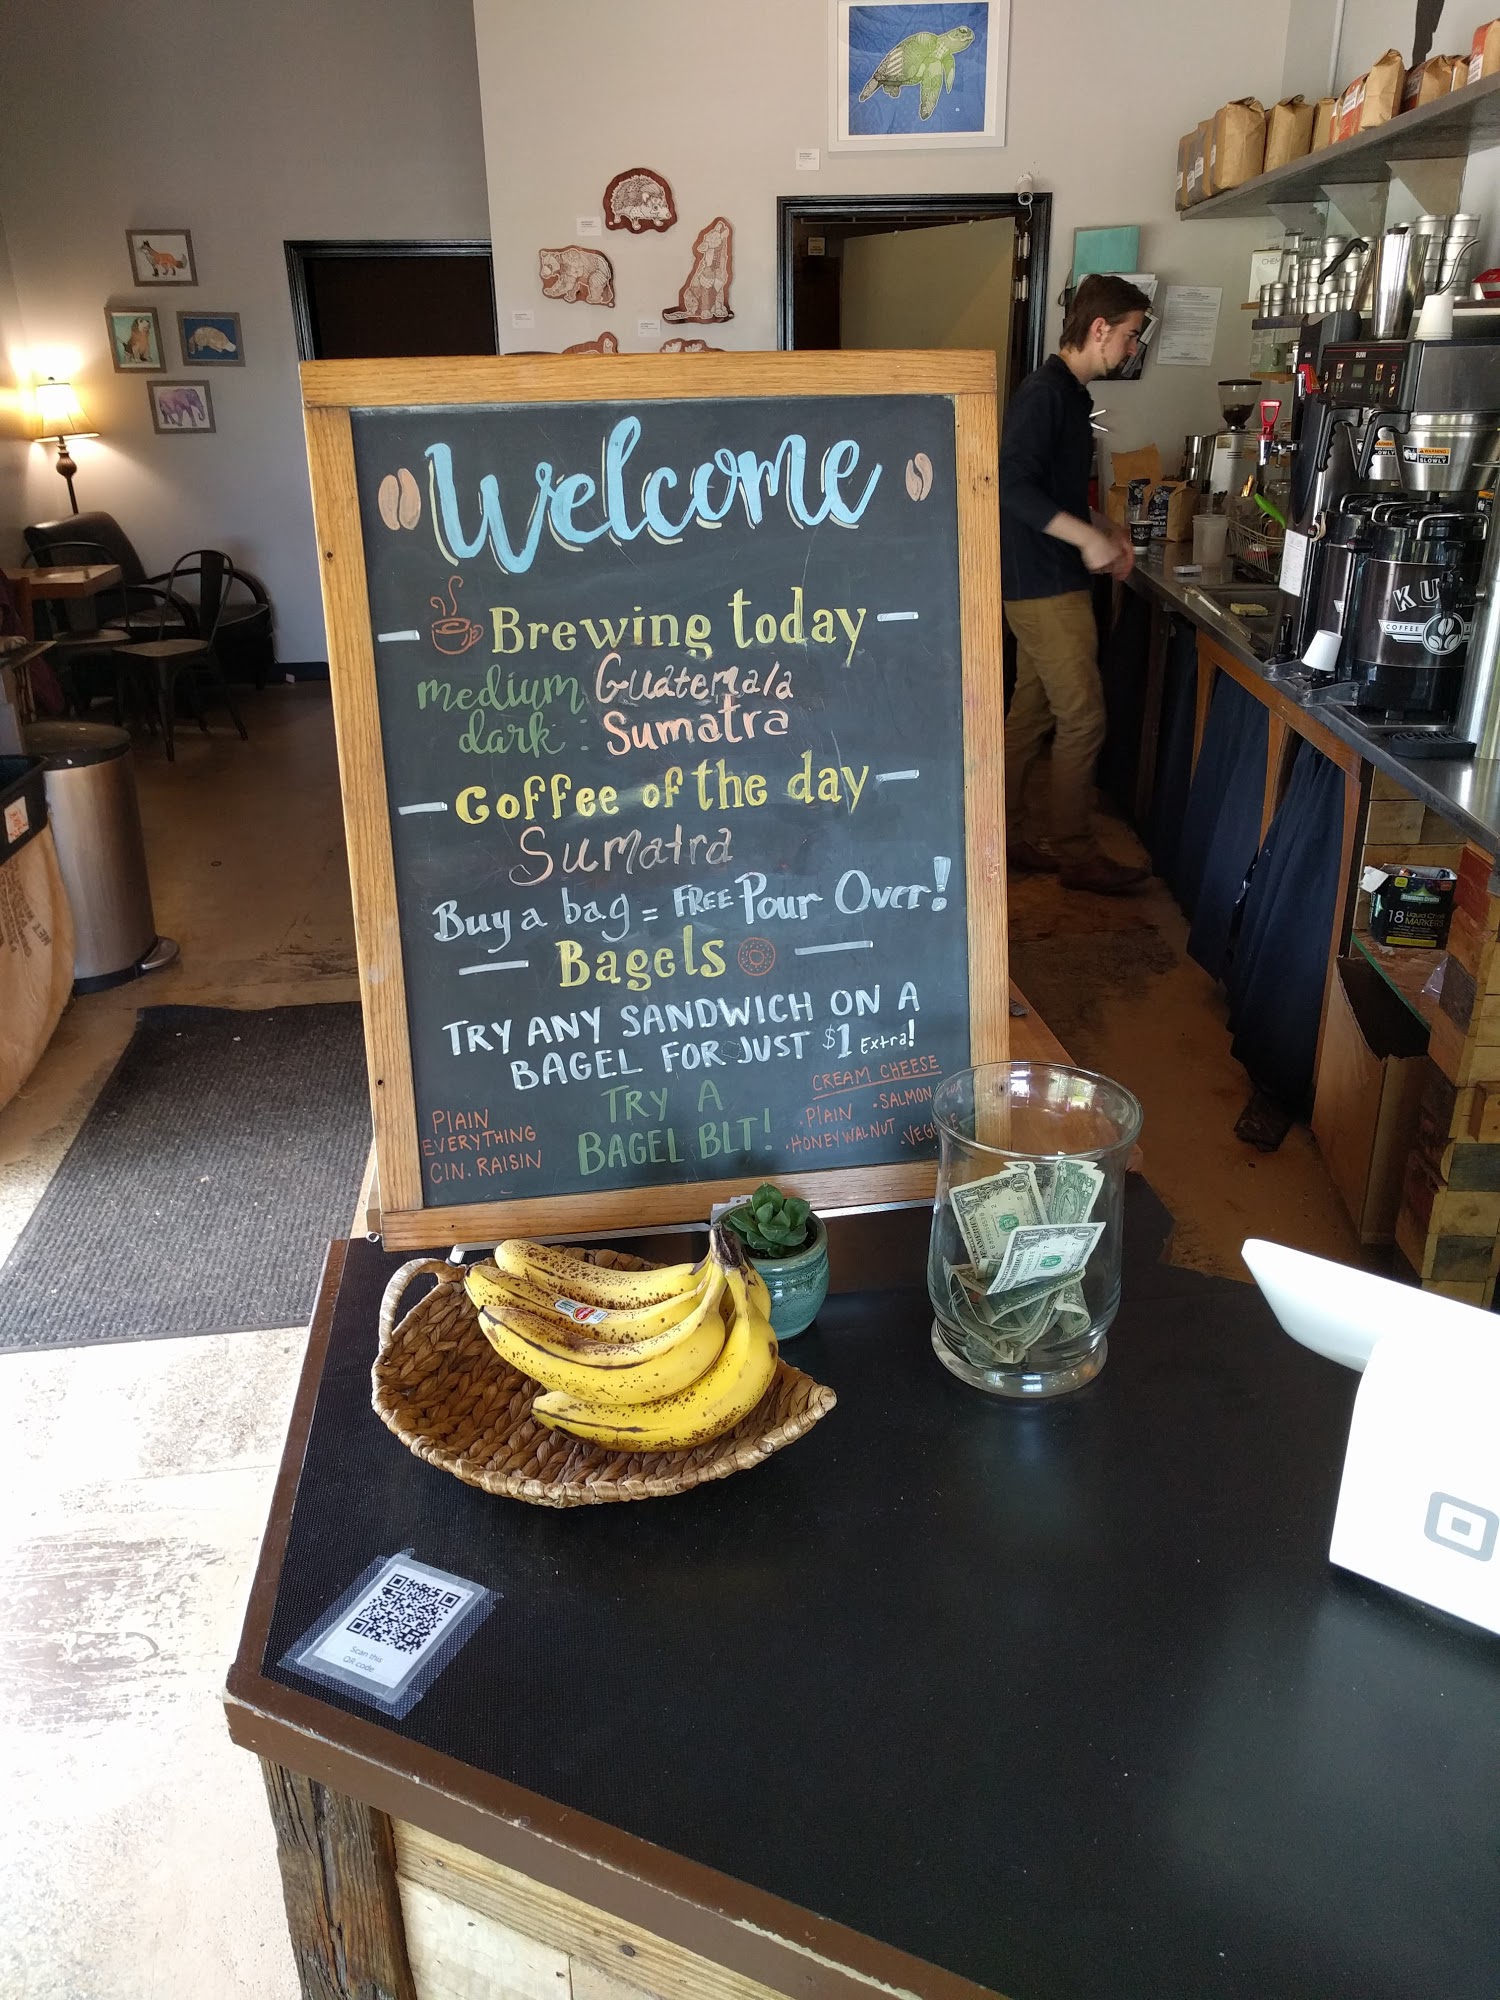 Welcome
Brewing today
medium Guatemala
dark : Sumatra
Coffee of the day
Sumatra
Buy a bag = FREE Pour Over!
Bagels
TRY ANY SANDWICH ON A
BAGEL FOR JUST $1 Extra!
TRY A
BAGEL BLT!
PLAIN
EVERYTHING
CIN. RAISIN
CREAM CHEESE
. PLAIN . SALMON
. HONEYWALNUT . VEGGIE
Scan this
QR code
BUNN
WARNING
SLOWLY
COFFEE
18 Liquid Chalk
MARKERS